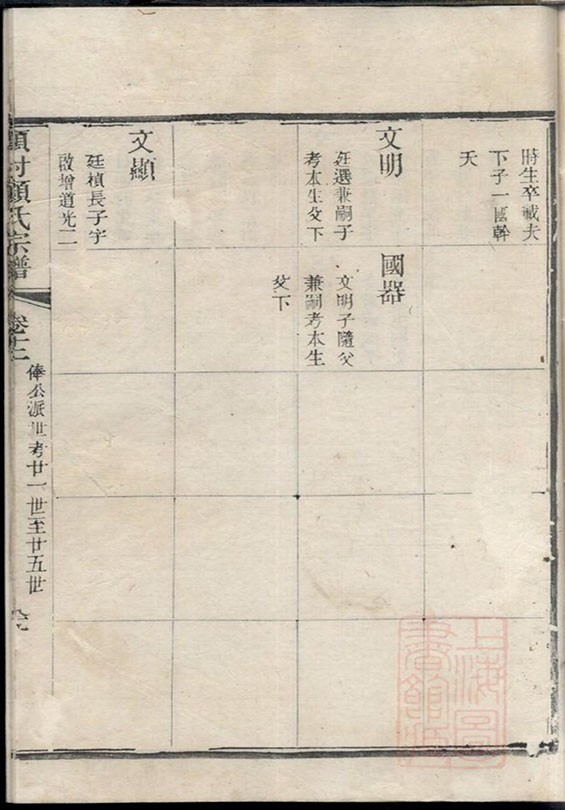 時生卒祓夫
下子一國幹
夭
文明
廷選兼嗣子
考本生父下
國器
文明子隨父
兼嗣考本生
父下
文顯
廷楨長子字
啟增道光二
顧氏宗譜
俸公派世考廿一世至廿五世
上海圖
書館藏